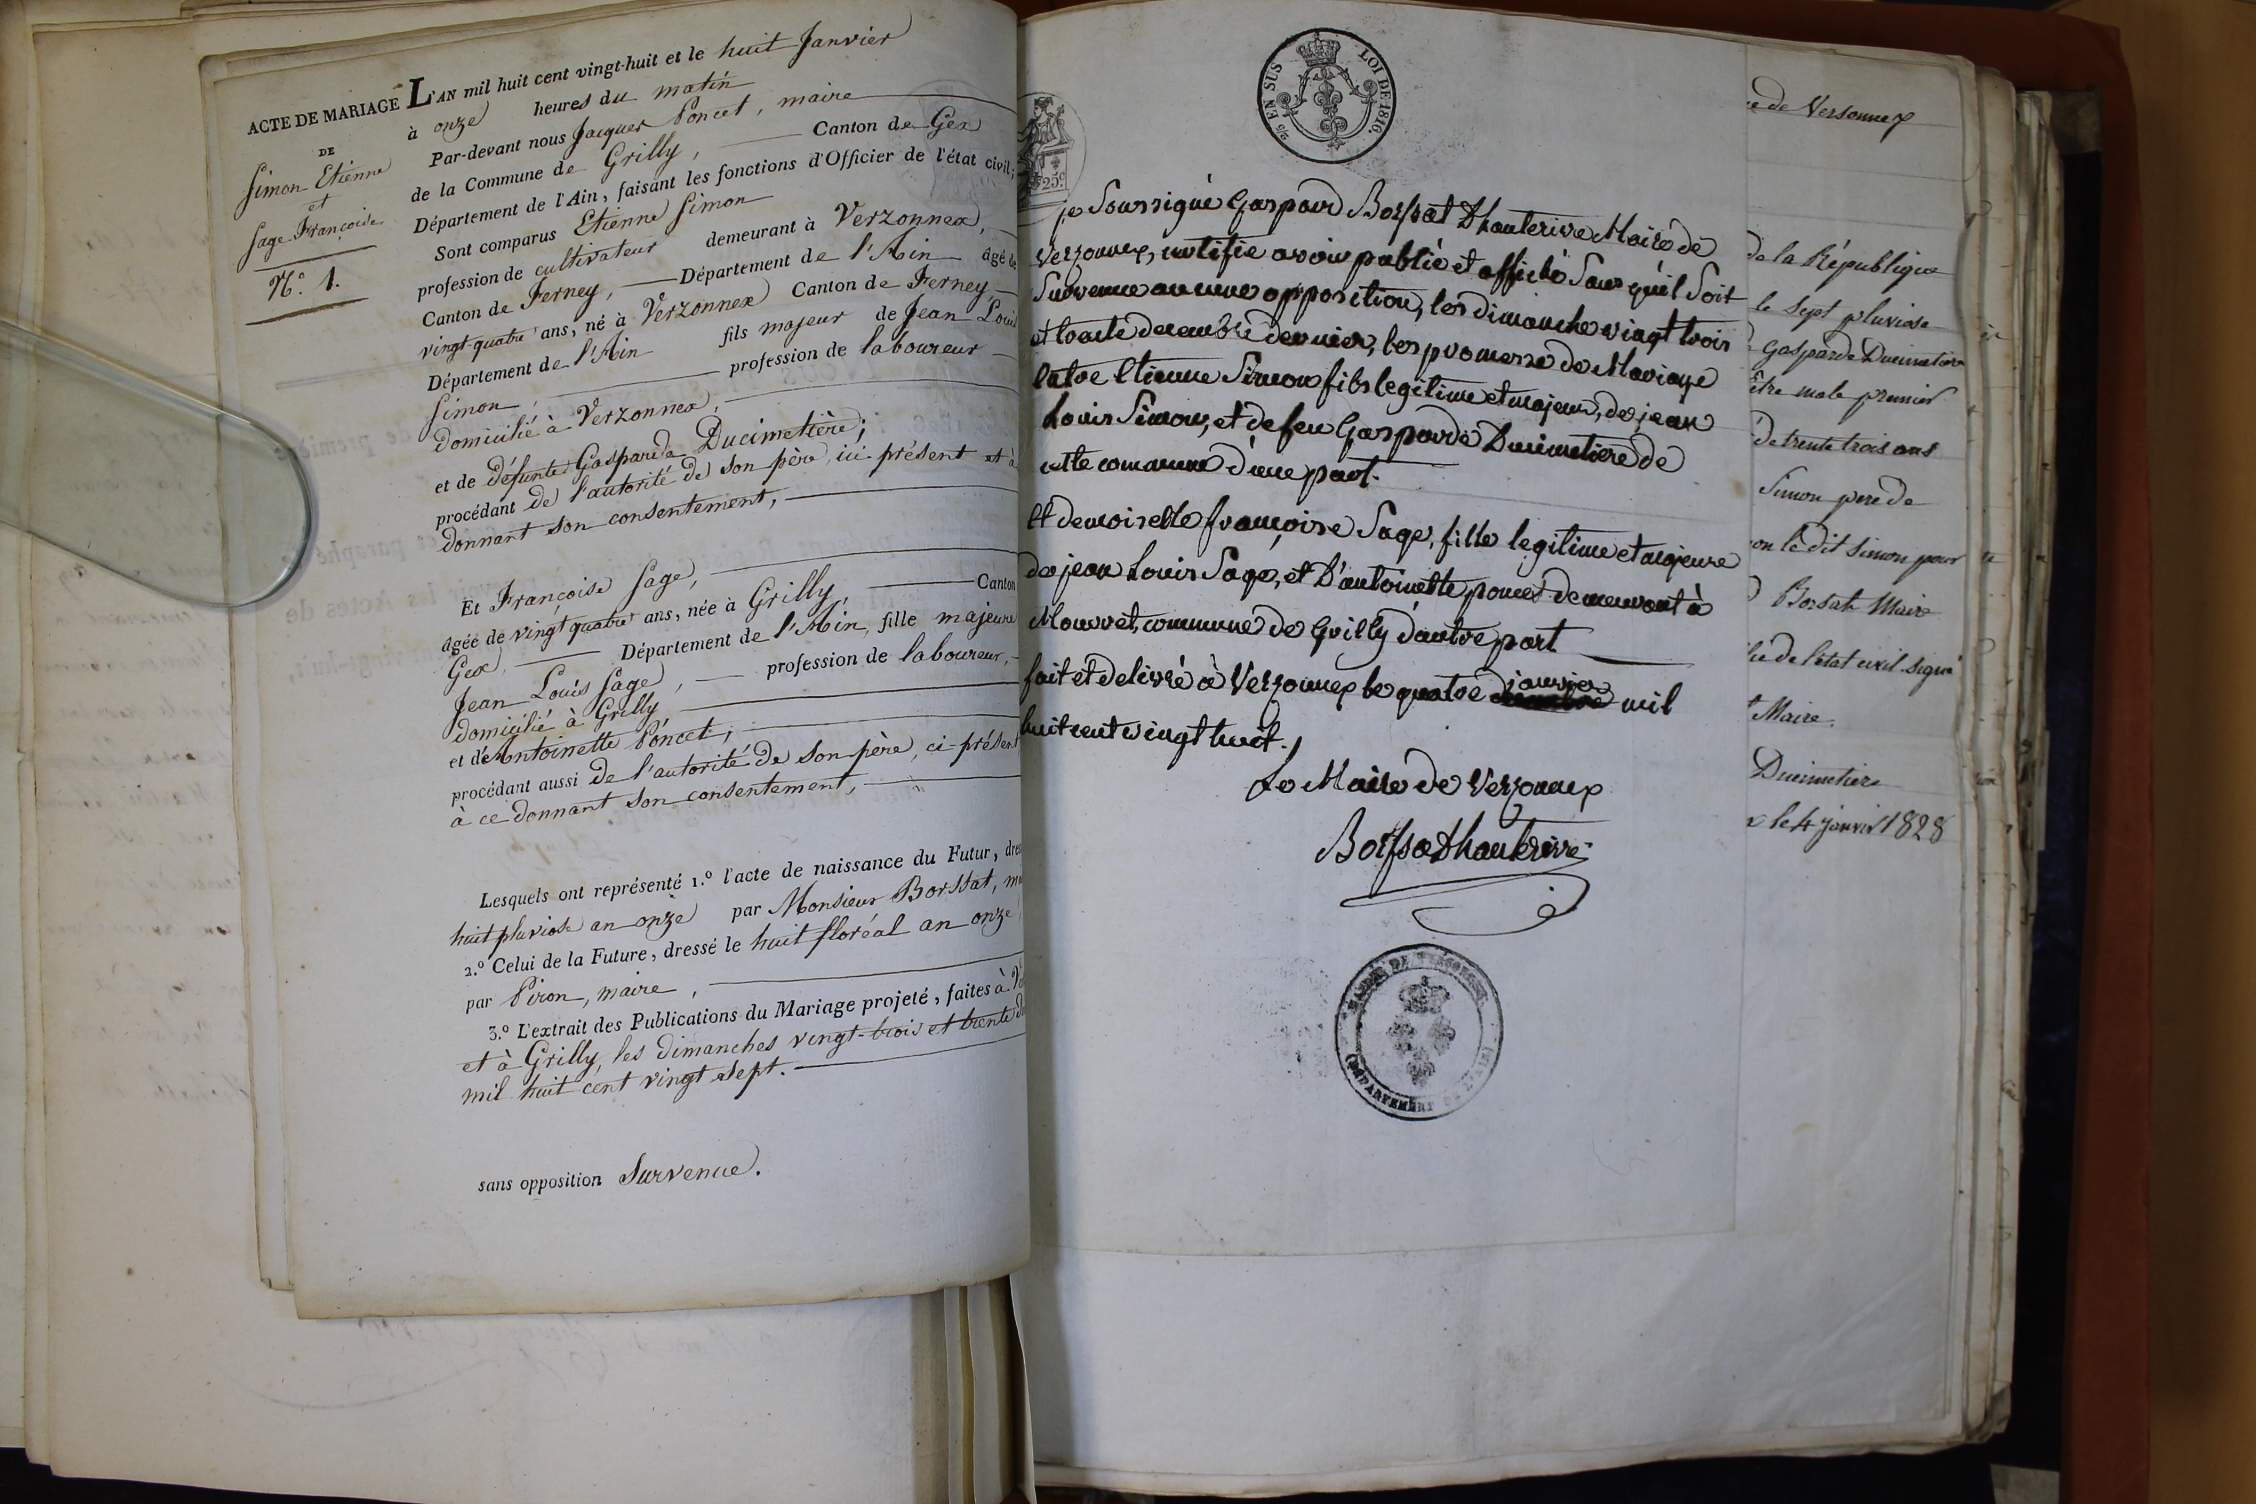 ACTE DE MARIAGE
DE
Simon Etienne
et
Sage Françoise
N.º 1.
L'AN mil huit cent vingt-huit et le huit Janvier
à onze heures du matin
Par-devant nous Jacques Poncet, maire
de la Commune de Grilly, Canton de Gex
Département de l'Ain, faisant les fonctions d'Officier de l'état civil;
Sont comparus Etienne Simon
profession de cultivateur demeurant à Verzonnex,
Canton de Ferney, Département de l'Ain agé de
vingt quatre ans, né à Verzonnex Canton de Ferney,
Département de l'Ain fils majeur de Jean Louis
Simon, profession de laboureur
domicilié à Verzonnex,
et de défunte Gasparde Ducimetière;
procédant de l'autorité de son père, ici présent et à
donnant son consentement,
Et Françoise Sage,
agée de vingt quatre ans, née à Grilly, Canton
Gex, Département de l'Ain, fille majeure
Jean Louis Sage, profession de laboureur,
domicilié à Grilly,
et d'Antoinette Poncet;
procédant aussi de l'autorité de son père, ci-présent
à ce donnant son consentement,
Lesquels ont représenté 1.º l'acte de naissance du Futur, dres
huit pluviose an onze par Monsieur Borssat, m
2.º Celui de la Future, dressé le huit floréal an onze
par Piron, maire,
3.º L'extrait des Publications du Mariage projeté, faites à Ve
et à Grilly, les dimanches vingt-trois et trente d
mil huit cent vingt sept.
sans opposition Survenue.
25c
EN SUS LOI DE 1816.
je Soussigné Gaspard Borssat Dhauterive Maire de
Verzonnex, certifie avoir publié et affiché Sans qu'il Soit
Survenue aucune opposition, les dimanche vingt trois
et trente decembre dernier, les promesse de Mariage
Entre Etienne Simon fils legitime et majeur, de jean
Louis Simon, et de feu Gasparde Ducimetiere de
cette commune d'une part.
Et demoiselle françoise Sage, fille legitime et majeure
de jean Louis Sage, et D'antoinette poncet demeurant à
Mourret, commune de Grilly d'autre part
fait et delivré à Verzonnex le quatre janvier mil
huit cent vingt huit.
Le Maire de Verzonnex
Borssat Dhauterive
MAIRIE DE VERSONNEX
DÉPARTEMENT DE L'AIN
de Versonnex
de la République
le sept pluviose
Gasparde Ducimetiere
être male premier
de trente trois ans
Simon pere de
on le dit Simon pour
Borsat Maire
de l'état civil signé
Maire.
Ducimetiere
le 4 janvier 1828